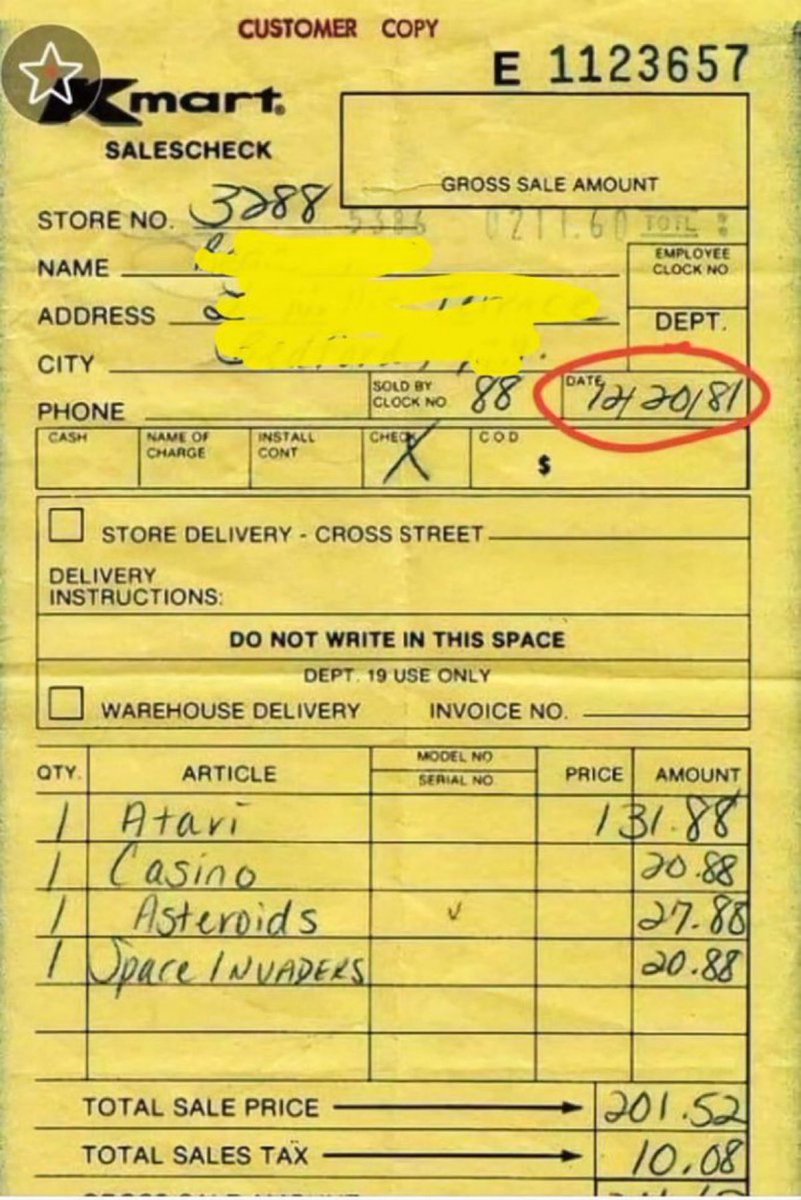 CUSTOMER COPY
E 1123657
Kmart®
SALESCHECK
GROSS SALE AMOUNT
STORE NO. 3288
5386 0211.60 TOTL
NAME
EMPLOYEE CLOCK NO
ADDRESS
DEPT.
CITY
PHONE
SOLD BY CLOCK NO 88
DATE 12/20/81
CASH NAME OF CHARGE INSTALL CONT CHECK X COD $
STORE DELIVERY - CROSS STREET
DELIVERY
INSTRUCTIONS:
DO NOT WRITE IN THIS SPACE
DEPT. 19 USE ONLY
WAREHOUSE DELIVERY INVOICE NO.
QTY. ARTICLE MODEL NO SERIAL NO PRICE AMOUNT
1 Atari 131.88
1 Casino 20.88
1 Asteroids ✓ 27.88
1 Space INVADERS 20.88
TOTAL SALE PRICE 201.52
TOTAL SALES TAX 10.08